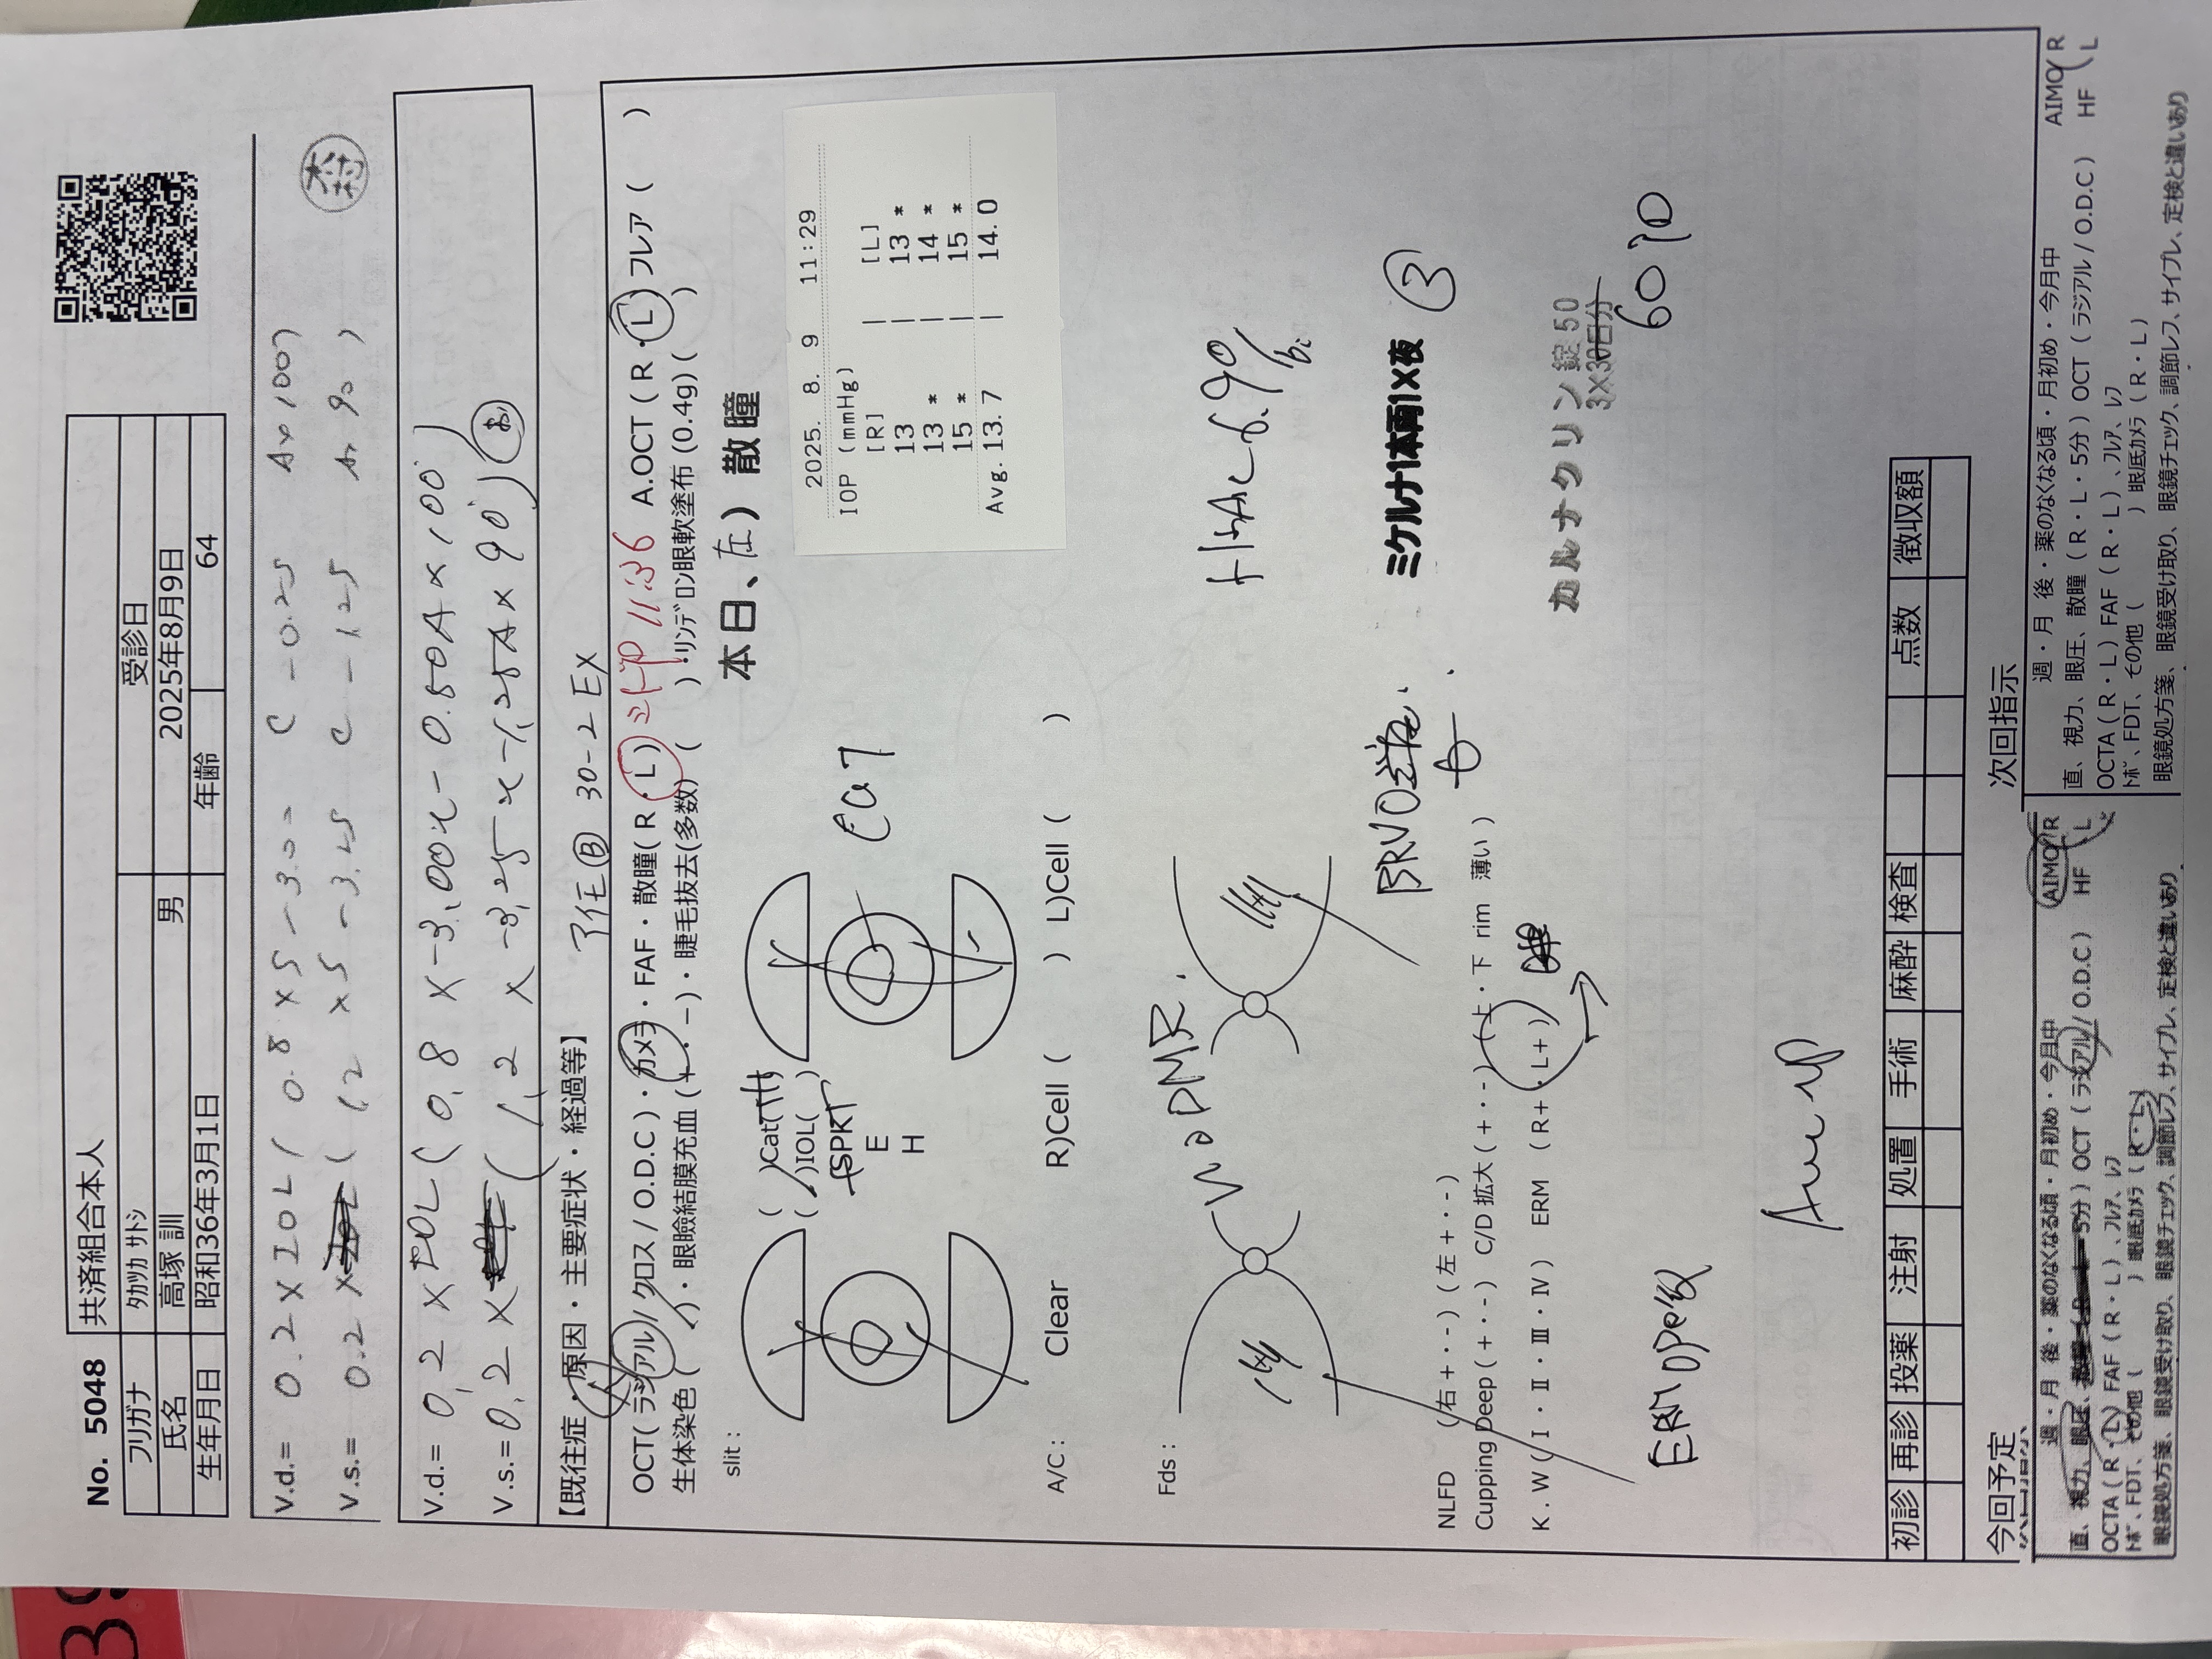 No. 5048 共済組合本人
フリガナ ﾀｶﾂｶ ｻﾄｼ 受診日
氏名 高塚 訓 男 2025年8月9日
生年月日 昭和36年3月1日 年齢 64
V.d.= 0.2 × IOL ( 0.8 × S -3.00 C -0.25 A× 100)
V.s.= 0.2 × ( 1.2 × S -3.25 C -1.25 A× 90 )
木村
V.d.= 0.2 × IOL ( 0.8 × -3.00 -0.50 A × 100° )
V.s.= 0.2 × ( 1.2 × -3.25 -1.25 A × 90° )
【既往症・原因・主要症状・経過等】 アイモ Ⓑ 30-2 EX
OCT( ラジアル / クロス / O.D.C )・カメラ・FAF・散瞳( R・L ) ミドP 11:36 A.OCT ( R・L ) フレア ( )
生体染色 ( )・眼瞼結膜充血 (+・−)・睫毛抜去(多数) ( )・ﾘﾝﾃﾞﾛﾝ眼軟塗布 (0.4g) ( )
slit :
本日、左）散瞳
( )Cat( )
( )IOL( )
SPK
E
H
Cat
2025. 8. 9 11:29
IOP (mmHg)
[R] | [L]
13 | 13 *
13 * | 14 *
15 * | 15 *
Avg. 13.7 | 14.0
A/C : Clear R)Cell ( ) L)Cell ( )
Fds :
no DMR.
HbA1c 6.9%
BRVO
ミケルナ1本両1×夜 ③
NLFD (右 +・-) (左 +・-)
Cupping Deep ( +・- ) C/D 拡大 ( +・- ) ( 上・下 rim 薄い )
K . W ( Ⅰ・Ⅱ・Ⅲ・Ⅳ ) ERM ( R+・L+ )
カルナクリン錠50
3×30日分
60
ERM ope後
初診 再診 投薬 注射 処置 手術 麻酔 検査 点数 徴収額
今回予定 次回指示
週・月 後・薬のなくなる頃・月初め・今月中 AIMO R
直、視力、眼圧、散瞳 ( R・L・5分 ) OCT ( ラジアル / O.D.C ) HF L
OCTA ( R・L ) FAF ( R・L ) 、ﾌﾚｱ、ﾚﾌ
ﾄﾎﾟ、FDT、その他 ( ) 眼底ｶﾒﾗ ( R・L )
眼鏡処方箋、眼鏡受け取り、眼鏡チェック、調節レフ、サイプレ、定検と違いあり
週・月 後・薬のなくなる頃・月初め・今月中 AIMO R
直、視力、眼圧、散瞳 ( R・L・5分 ) OCT ( ラジアル / O.D.C ) HF L
OCTA ( R・L ) FAF ( R・L ) 、ﾌﾚｱ、ﾚﾌ
ﾄﾎﾟ、FDT、その他 ( ) 眼底ｶﾒﾗ ( R・L )
眼鏡処方箋、眼鏡受け取り、眼鏡チェック、調節レフ、サイプレ、定検と違いあり